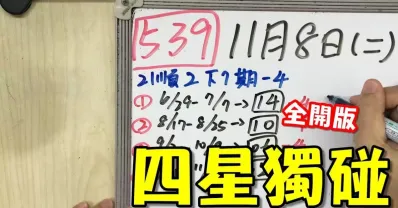 539 11月8日(二)
21順2下7期-4
① 6/29-7/7→14
② 8/17-8/25→10
全開版
四星獨碰